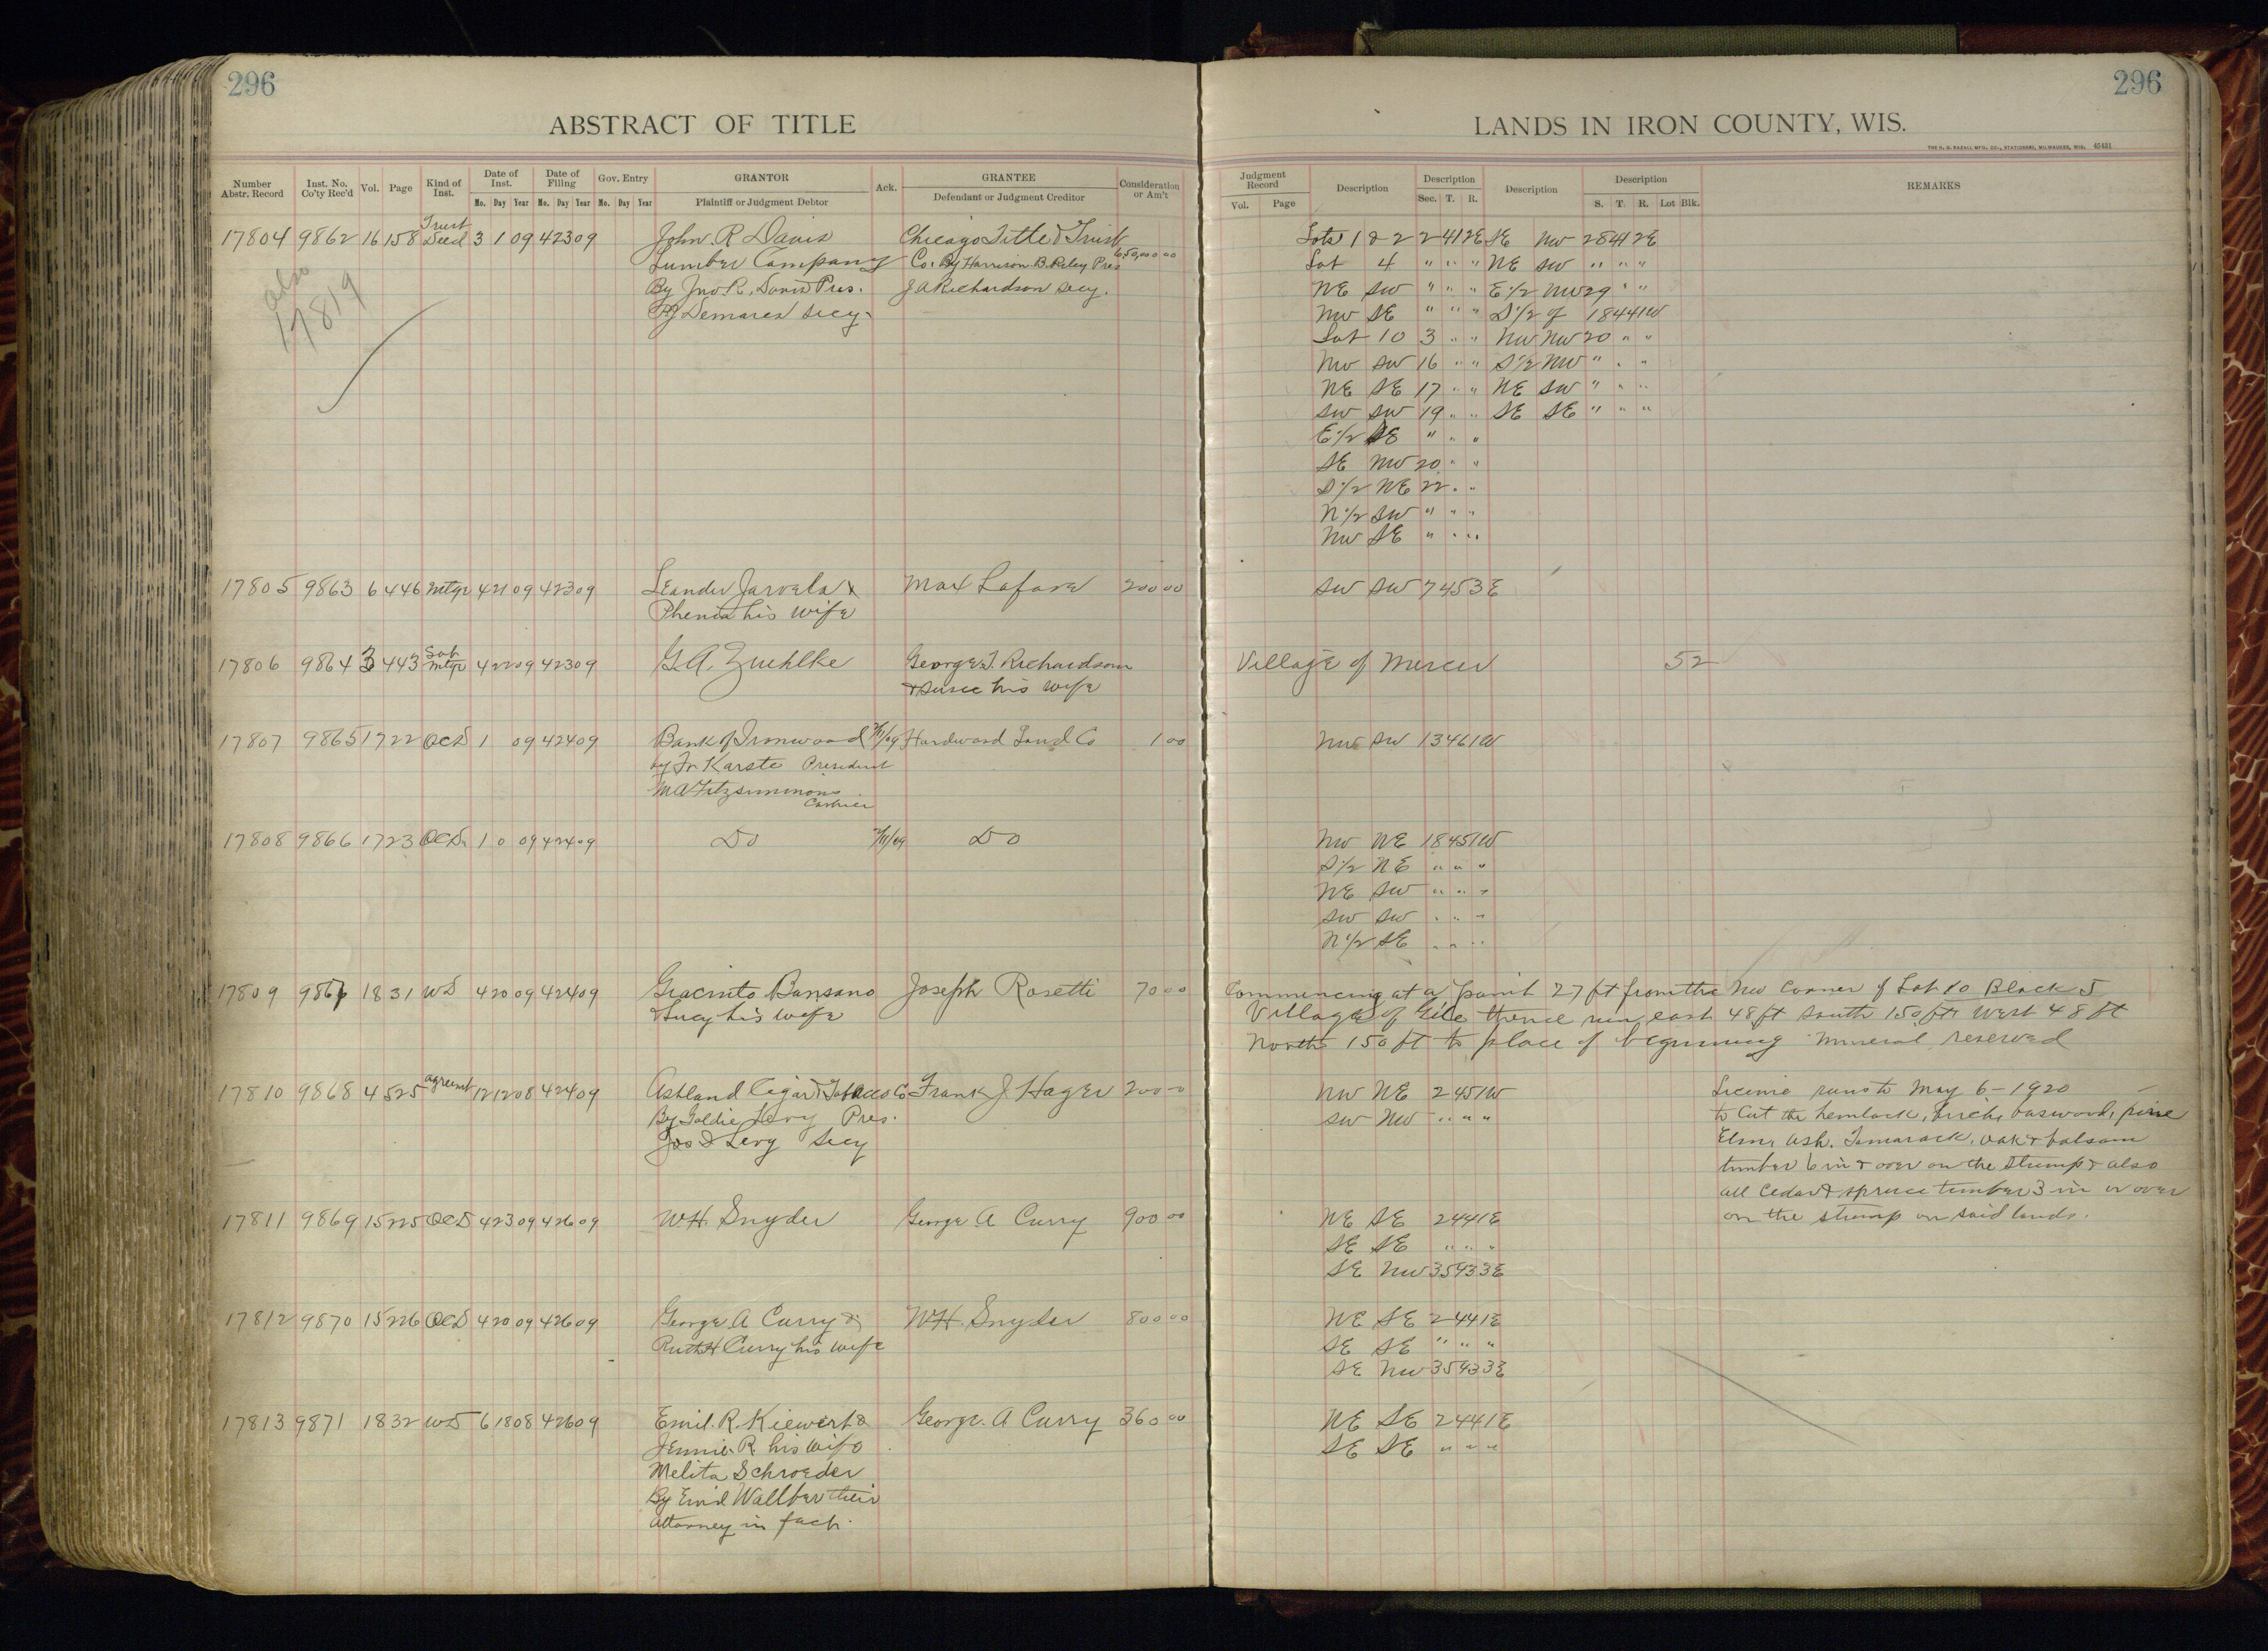 296
296
ABSTRACT OF TITLE
LANDS IN IRON COUNTY, WIS.
THE H. G. RAZALL MFG. CO., STATIONERS, MILWAUKEE, WIS. 45431
Number Abstr. Record Inst. No. Co'ty Rec'd Vol. Page Kind of Inst. Date of Inst. Date of Filing Gov. Entry GRANTOR Ack. GRANTEE Consideration or Am't
Mo. Day Year Mo. Day Year Mo. Day Year Plaintiff or Judgment Debtor Defendant or Judgment Creditor
Judgment Record Description Description Description Description REMARKS
Vol. Page Sec. T. R. S. T. R. Lot Blk.
17804 9862 16 158 Trust Deed 3 1 09 4 23 09 John R Davis Chicago Title & Trust 650,000 00 Lots 1 & 2 2 41 2E SE NW 28 41 2E
Lumber Company Co. By Harrison B. Riley Pres Lot 4 " " " NE SW " " "
By Jno. R. Davis Pres. J A Richardson Secy. NE SW " " " E 1/2 NW 29 " "
Secy. NW SE " " " S 1/2 of 18 44 1W
also 17819
Lot 10 3 " " NW NW 20 " "
NW SW 16 " " S 1/2 NW " " "
NE SE 17 " " NE SW " " "
SW SW 19 " " SE SE " " "
E 1/2 SE " " "
SE NW 20 " "
S 1/2 NE 22 " "
N 1/2 SW " " "
NW SE " " "
17805 9863 6 446 Mtge 4 21 09 4 23 09 Leander Jarvela & Max Lafave 200 00 SW SW 7 45 3E
his wife
17806 9864 3 443 Sat Mtge 4 22 09 4 23 09 G. A. Zuehlke George T. Richardson Village of Mercer 52
& Susie his wife
17807 9865 17 22 QCD 1 09 4 24 09 Bank of Ironwood Hardwood Land Co 1 00 NW SW 13 46 1W
by Karste President
M A Fitzsimmons
Cashier
17808 9866 17 23 QCD 1 0 09 4 24 09 Do Do NW NE 18 45 1W
S 1/2 NE " " "
NE SW " " "
SW SW " " "
N 1/2 SE " " "
17809 9867 18 31 WD 4 20 09 4 24 09 Giacinto Bansano Joseph Rosetti 70 00 Commencing at a point 27 ft from the NW Corner of Lot 10 Block 5
& Lucy his wife Village of Gile thence run east 48 ft South 150 ft West 48 ft
North 150 ft to place of beginning Mineral reserved
17810 9868 4 525 agreemt 12 12 08 4 24 09 Ashland Cigar & Tobacco Co Frank J Hager 200 00 NW NE 2 45 1W License runs to May 6 - 1920
By Goldie Levy Pres. SW NW " " " to Cut the hemlock, birch, basswood, pine
Jos Levy Secy Elm, Ash, Tamarack, oak & balsam
timber 6 in & over on the stump & also
all Cedar & spruce timber 3 in or over
on the stump on said lands.
17811 9869 15 225 QCD 4 23 09 4 26 09 W H. Snyder George A Curry 900 00 NE SE 2 44 1E
SE SE " " "
SE NW 35 43 3E
17812 9870 15 226 QCD 4 20 09 4 26 09 George A Curry & W H. Snyder 800 00 NE SE 2 44 1E
Ruth H Curry his wife SE SE " " "
SE NW 35 43 3E
17813 9871 18 32 WD 6 18 08 4 26 09 Emil. R. Kiewert & George. A Curry 360 00 NE SE 2 44 1E
Jennie. R. his wife SE SE " " "
Melita Schroeder
By Emil Wallber their
Attorney in fact.